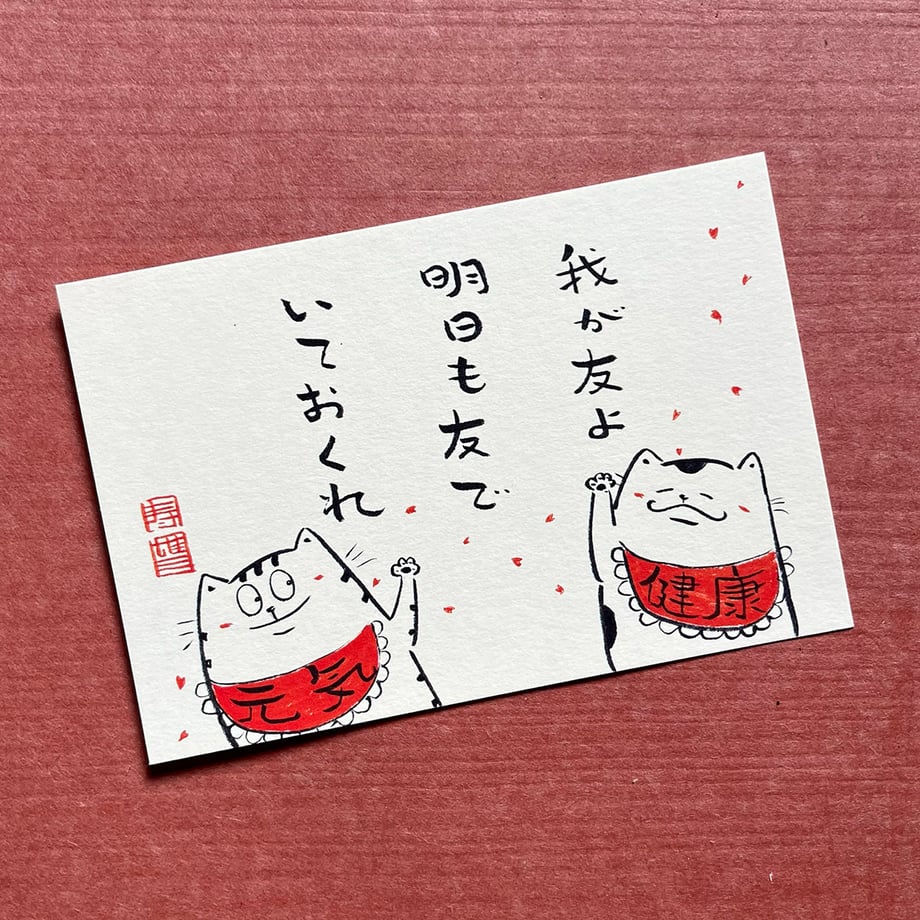 我が友よ
明日も友で
いておくれ
健康
元気